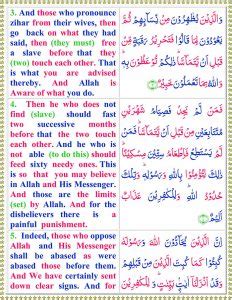 3. And those who pronounce
zihar from their wives, then
go back on what they had
said, then (they must) free
a slave before that they
(two) touch each other. That
is what you are advised
thereby. And Allah is
Aware of what you do.
4. Then he who does not
find (slave) should fast
two successive months
before that the two touch
each other. And he who is
not able (to do this) should
feed sixty needy ones. This
is so that you may believe
in Allah and His Messenger.
And those are the limits
(set) by Allah. And for the
disbelievers there is a
painful punishment.
5. Indeed, those who oppose
Allah and His Messenger
shall be abased as were
abased those before them.
And We have certainly sent
down clear signs. And for
وَالَّذِينَ يُظَاهِرُونَ مِنْ نِسَائِهِمْ ثُمَّ
يَعُودُونَ لِمَا قَالُوا فَتَحْرِيرُ رَقَبَةٍ مِنْ
قَبْلِ أَنْ يَتَمَاسَّا ذَلِكُمْ تُوعَظُونَ بِهِ
وَاللَّهُ بِمَا تَعْمَلُونَ خَبِيرٌ
فَمَنْ لَمْ يَجِدْ فَصِيَامُ شَهْرَيْنِ
مُتَتَابِعَيْنِ مِنْ قَبْلِ أَنْ يَتَمَاسَّا فَمَنْ لَمْ
يَسْتَطِعْ فَإِطْعَامُ سِتِّينَ مِسْكِينًا
ذَلِكَ لِتُؤْمِنُوا بِاللَّهِ وَرَسُولِهِ وَتِلْكَ
حُدُودُ اللَّهِ وَلِلْكَافِرِينَ عَذَابٌ
أَلِيمٌ
إِنَّ الَّذِينَ يُحَادُّونَ اللَّهَ وَرَسُولَهُ
كُبِتُوا كَمَا كُبِتَ الَّذِينَ مِنْ قَبْلِهِمْ
وَقَدْ أَنْزَلْنَا آيَاتٍ بَيِّنَاتٍ وَلِلْكَافِرِينَ